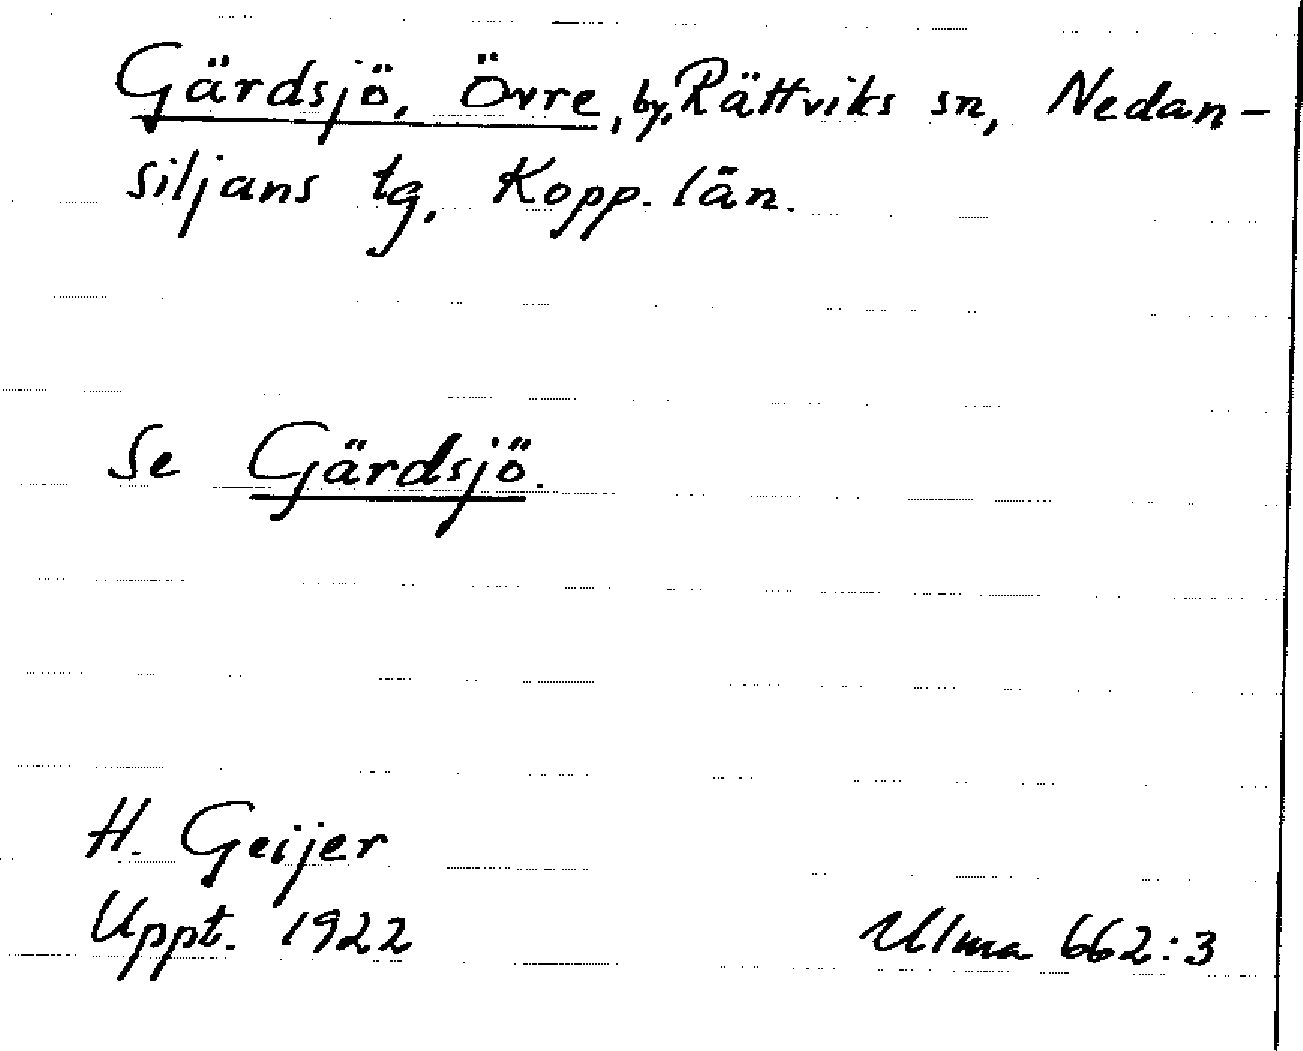 Gärdsjö, Övre, by, Rättviks sn, Nedan-
siljans tg, Kopp. län.
Se Gärdsjö.
H. Geijer
Uppt. 1922
Ulma 662:3